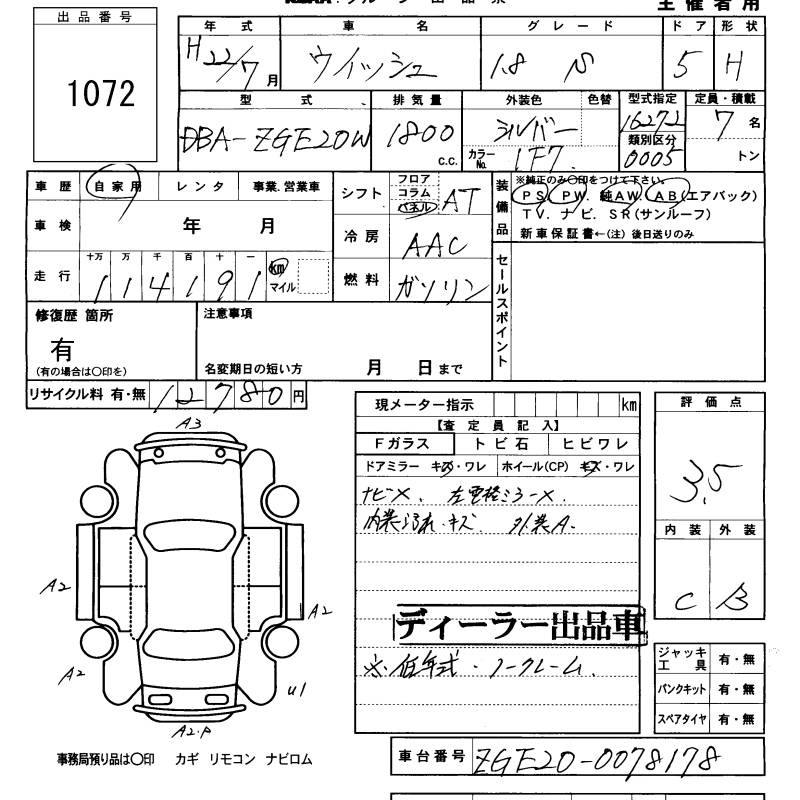 主催者用
出品番号
1072
年式 車名 グレード ドア 形状
H22/7月 ウイッシュ 1.8 S 5 H
型式 排気量 外装色 色替 型式指定 定員・積載
DBA-ZGE20W 1800 c.c. シルバー 16272 7名
類別区分
カラーNo. 1F7 0005 トン
車歴 自家用 レンタ 事業.営業車
車検 年 月
走行 十万 万 千 百 十 一
114191 km マイル
シフト フロア コラム パネル AT
冷房 AAC
燃料 ガソリン
装備品
※純正のみ〇印をつけて下さい。
PS. PW. 純AW. AB(エアバック)
TV. ナビ. SR(サンルーフ)
新車保証書←(注)後日送りのみ
セールスポイント
修復歴 箇所
有
(有の場合は〇印を)
注意事項
名変期日の短い方 月 日まで
リサイクル料 有・無 12780円
現メーター指示 km
【査定員記入】
Fガラス トビ石 ヒビワレ
ドアミラー キズ・ワレ ホイール(CP) キズ・ワレ
ナビX. 左電格ミラーX.
内装よごれ.キズ. 外装A.
ディーラー出品車
※.低年式・ノークレーム.
評価点
3.5
内装 外装
C B
ジャッキ工具 有・無
パンクキット 有・無
スペアタイヤ 有・無
A3
A2
A2
A2
u1
A2.P
事務局預り品は〇印 カギ リモコン ナビロム
車台番号 ZGE20-0078178